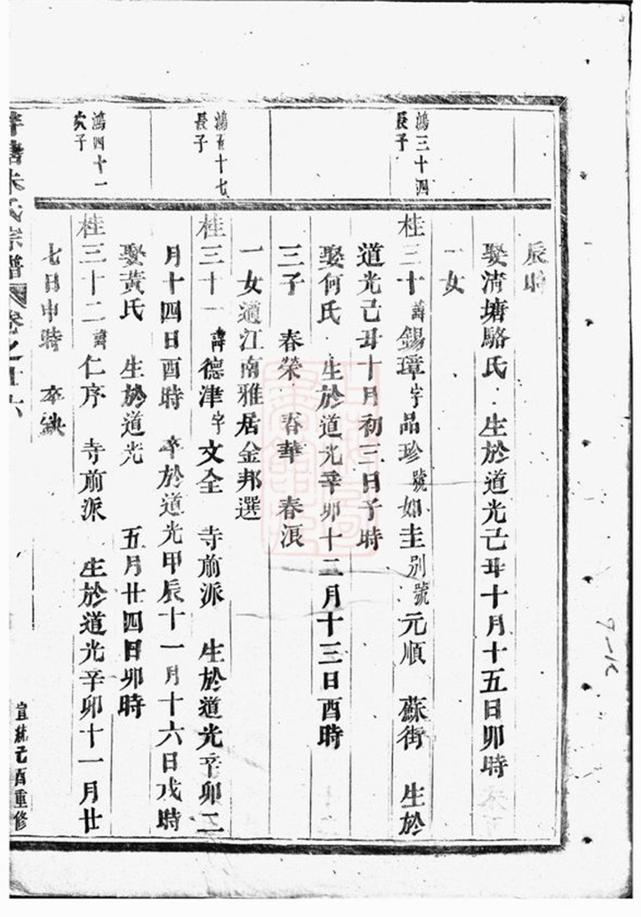 辰時
娶清塘駱氏 生於道光己丑十月十五日卯時
一女
鴻三十四長子
桂三十 諱錫璋字品珍號如圭別號元順 蘇街 生於
道光己丑十月初三日子時
娶何氏 生於道光辛卯十二月十三日酉時
三子 春榮 春華 春浪
一女適江南雅居金邦選
鴻 十七長子
桂三十一諱德津字文全 寺前派 生於道光辛卯二
月十四日酉時 卒於道光甲辰十一月十六日戌時
娶黃氏 生於道光 五月廿四日卯時
鴻四十一次子
桂三十二諱仁序 寺前派 生於道光辛卯十一月廿
七日申時 卒缺
朱氏宗譜 卷之廿六
宣統己酉重修